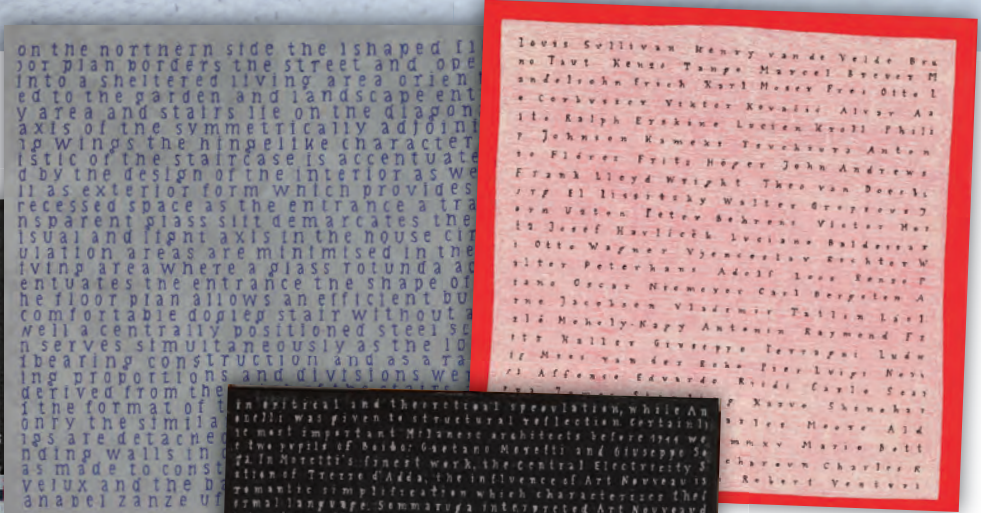 on the northern side the lshaped fl
oor plan borders the street and ope
into a sheltered living area orien
ed to the garden and landscape ent
y area and stairs lie on the diagon
axis of the symmetrically adjoini
ng wings the hingelike character
istic of the staircase is accentuate
d by the design of the interior as we
ll as exterior form which provides
recessed space as the entrance a tra
nsparent glass slit demarcates the
isual and light axis in the house cir
ulation areas are minimised in the
iving area where a glass rotunda ac
entuates the entrance the shape of
he floor plan allows an efficient bu
comfortable dogleg stair without a
well a centrally positioned steel sc
n serves simultaneously as the lo
dbearing construction and as a ra
ing proportions and divisions wer
derived from the
f the format of t
only the simila
igs are detached
nding walls in
as made to const
velux and the ba
anabel zanze uf
louis Sullivan Henry van de Velde Bru
no Taut Kenzo Tange Marcel Breuer M
endelsohn Erich Karl Moser Frei Otto L
e Corbusier Viktor Kovačić Alvar Aa
lto Ralph Erskine Lucien Kroll Phili
p Johnson Kameki Tsuchiura Anton
Fritz Höger John Andrews
Frank Lloyd Wright Theo van Doesb
urg El lissitzky Walter Gropius J
ørn Utzon Peter Behrens Victor Hor
ta Josef Havlíček Luciano Baldessar
i Otto Wagner Vjenceslav Richter W
alter Peterhans Adolf Loos Renzo P
iano Oscar Niemeyer Carl Bergsten A
rne Jacobsen Vladimir Tatlin Lász
ló Moholy-Nagy Antonin Raymond Fr
itz Haller Giuseppe Terragni Ludw
ig Mies van der Rohe Pier Luigi Nervi
Affonso Eduardo Reidy Carlo Scar
Karvo Shenoker
Charles Moore Ald
Mario Bott
Charles R
Robert Venturi
in critical and theoretical speculation, while An
tonelli was given to structural reflection Certainly
e most important Milanese architects before 1900 we
re the pupils of Boito: Gaetano Moretti and Giuseppe So
Moretti's finest work, the Central Electricity S
ation of Trezzo d'Adda, the influence of Art Nouveau is
romantic simplification which characterizes the f
ormal language. Sommaruga interpreted Art Nouveau